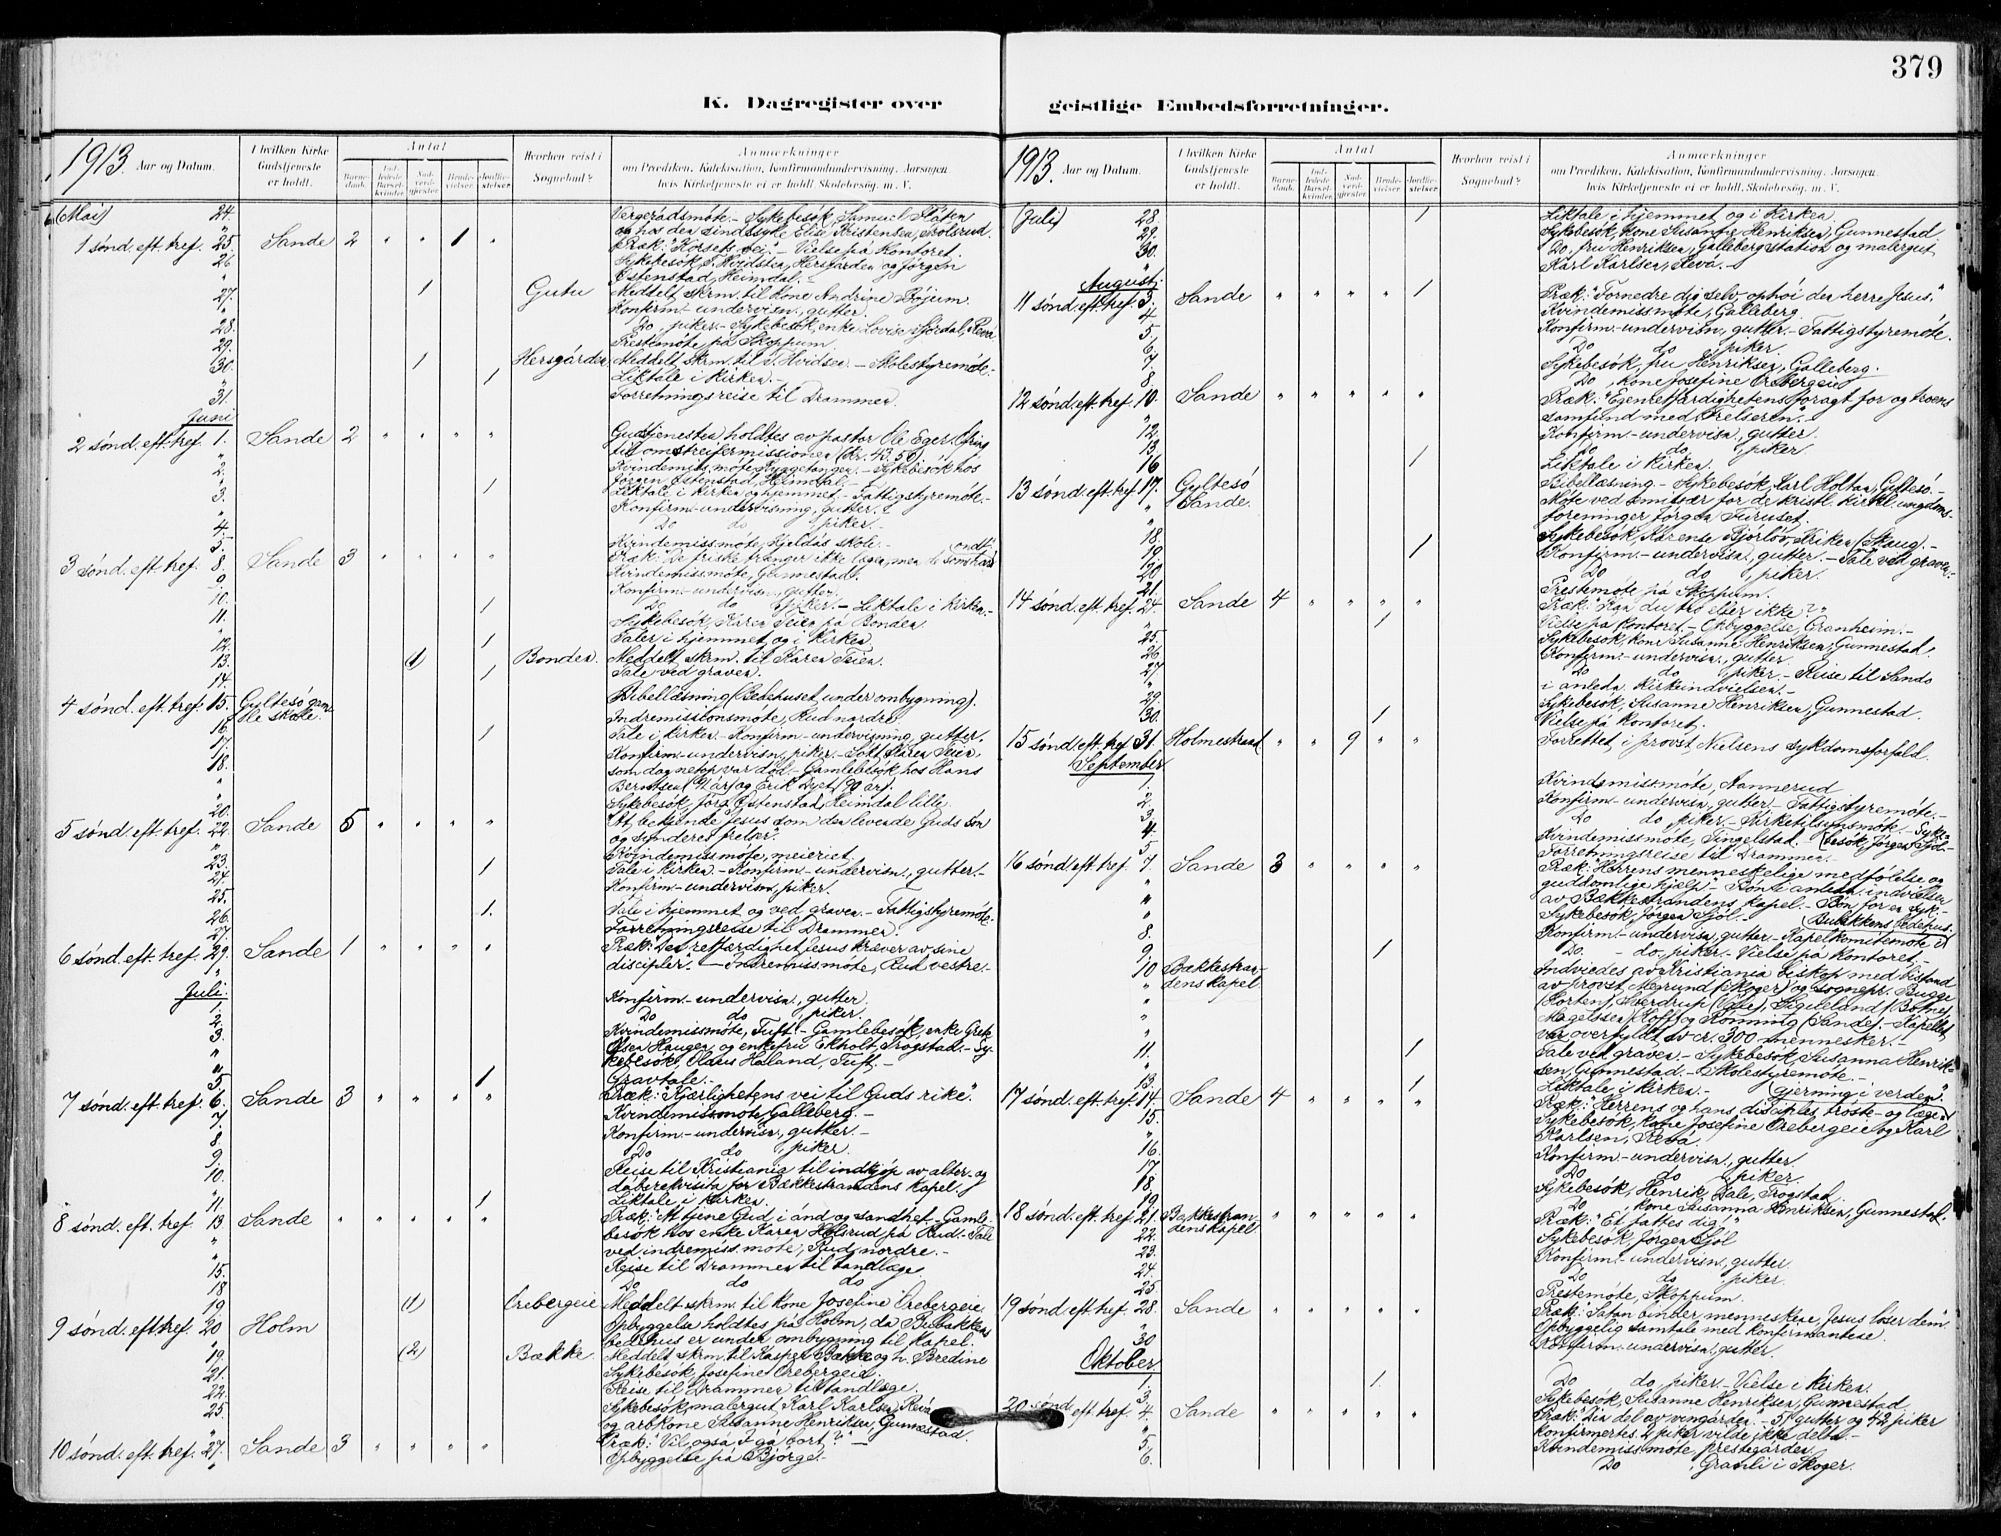 379
K. Dagregister over
geistlige Embedsforretninger.
1913. Aar og Datum.
I hvilken Kirke Gudstjeneste er holdt.
Antal
Barne-daab.
Ind-ledede Barsel-kvinder.
Nad-verd-gjester.
Brude-vielser.
Jordfæ-stelser.
Hvorhen reist i Sognebud?
Anmærkninger
om Prædiken, Katekisation, Konfirmandundervisning, Aarsagen,
hvis Kirketjeneste ei er holdt, Skolebesøg, m. V.
(Mai) 24. Vergerådsmöte. - Sykebesök, Samuel Flåten
og hos den sindssyke Elise Kristensen, Trolsrud.
1 sönd. eft. tref. 25. Sande 2 " " 1 " Præk: "Korsets vei". - Vielse på kontoret.
26. Sykebesök, T. Hvidsten, Hersgården og Jörgen
Östenstad, Heimdal. -
27. 1 Gutu Meddelt skrm. til kone Andrine Böjum.
" Konfirm.-undervisn., gutter.
28. Do piker. - Sykebesök, enke Lovise Fjordal, Revå
29. Prestemöte på Skoppum.
30. 1 Hersgården Meddelt skrm. til T. Hvidsen. - Skolestyremöte.
" 1 Liktale i kirken. -
31. Forretningsreise til Drammen.
Juni
2 sönd. eft. tref. 1. Sande 2 " " " " Gudstjenesten holdtes av pastor Ole Eger, Ofring
til omstreifermissionen (Kr. 43.50).
2. Kvindemiss.möte, Ryggetangen. - Sykebesök hos
" Jörgen Östenstad, Heimdal. -
3. 1 Liktale i kirken og hjemmet. - Fattigstyremöte. -
" Konfirm.-undervisning, gutter.
4. Do do piker. -
5. Kvindemissmöte, Kjeldås skole. -
3 sönd. eft. tref. 8. Sande 3 " " " " Præk: "De friske trænger ikke læge, men de som har ondt."
9. Kvindemissmöte, Gunnestad.
10. Konfirm.-undervisn., gutter.
11. 1 Do do piker. - Liktale i kirken. -
" Sykebesök, Karen Teien på Bonden.
12. 1 Taler i hjemmet og i kirken.
13. (1) Bonden. Meddelt skrm. til Karen Teien.
14. 1 Tale ved graven.
4 sönd. eft. tref. 15. Gyltesö gamle skole. Bibellæsning (Bedehuset under ombygning).
Indremissionsmöte, Rud nordre.
16. 1 Tale i kirken. - Konfirm.-undervisning, gutter.
17. Konfirm.-undervisn., piker. - Sökt Karen Teien,
18. som dog netop var död. - Gamlebesök hos Hans
" Berntsen (92 år) og Erik Dyet (90 år).
20. Sykebesök, Jörg. Östenstad, Heimdal lille.
5 sönd. eft. tref. 22. Sande 5 " " " " "At bekjende Jesus som den levende Guds Sön
og synderes frelser".
" Kvindemissmöte, meieriet.
23. 1 Tale i kirken. - Konfirm.-undervisn., gutter. -
24. Konfirm.-undervisn., piker.
25.
26. 1. Tale i hjemmet og ved graven. - Fattigstyremöte.
27. Forretningsreise til Drammen.
6 sönd. eft. tref. 29. Sande 1 " " " " Præk: "Den retfærdighet Jesus kræver av sine
disciple". - Indremissmöte, Rud vestre. -
Juli.
1. Konfirm.-undervisn., gutter.
2. Do do piker.
3. Kvindemissmöte, Tuft. - Gamlebesök, enke Grete
" Olsen Haugen og enkefru Ekholt, Trogstad. - Sy-
" kebesök, Olaus Holland, Tuft. -
5. 1 Gravtale. -
7 sönd. eft. tref. 6. Sande 3 " " " " Præk: "Kjærlighetens vei til Guds rike".
7. Kvindemissmöte, Galleberg. -
8. Konfirm.-undervisn., gutter. -
9. Do do , piker.
10. Reise til Kristiania til indkjöp av alter- og
dåbsrekvisita for Bækkestrandens kapel.
11. 1 Liktale i kirken.
8 sönd. eft. tref. 13 Sande " " " " " Præk: "At tjene Gud i ånd og sandhet. - Gamle-
besök hos enke Karen Helsrud på Rud. - Tale
ved indremiss.möte, Rud nordre. -
15. Reise til Drammen til tandlæge.
18 Do do do
19. (1) Orebergeie Meddelt skrm. til kone Josefine Orebergeie
9 sönd. eft tref. 20 Holm Opbyggelse holdtes på Holm, da Bubakkens
bedehus er under ombygning til kapel.
19. (2) Bække. Meddelt skrm. til Kasper Bække og h. Bredine
21. Sykebesök, Josefine Orebergeie.
22. Reise til Drammen til tandlæge.
25. Sykebesök, malergut Karl Karlsen, Revå
" og arb.kone Susanne Henriksen, Gunnestad
10 sönd. eft. tref. 27. Sande 3 " " " " Præk: "Vil også I gå bort?" -
" Opbyggelse på Bjørge. -
1913. Aar og Datum.
I hvilken Kirke Gudstjeneste er holdt.
Antal
Barne-daab.
Ind-ledede Barsel-kvinder.
Nad-verd-gjester.
Brude-vielser.
Jordfæ-stelser.
Hvorhen reist i Sognebud?
Anmærkninger
om Prædiken, Katekisation, Konfirmandundervisning, Aarsagen,
hvis Kirketjeneste ei er holdt, Skolebesøg, m. V.
(Juli) 28. 1 Liktale i hjemmet og i kirken.
29. Sykebesök, kone Susanne Henriksen, Gunnestad
30. Do , fru Henriksen, Galleberg station og malergut
" Karl Karlsen, Revå. -
August.
11 sönd. eft. tref. 3. Sande " " " " 1 Præk: "Fornedre dig selv, ophöi den herre Jesus."
4. Kvindemissmöte, Galleberg.
5. Konfirm.-undervisn., gutter. - Fattigstyremöte.
6. Do do , piker
7. Sykebesök, fru Henriksen, Galleberg.
8. Do , kone Josefine Orebergeie
12 sönd. eft. tref. 10. Sande " " " " " Præk: "Egenretfærdighetens foragt for og troens
samfund med Frelseren".
12. Konfirm.-undervisn., gutter.
13. Do do , piker.
16 1 Liktale i kirken.
13 sönd. eft. tref. 17. Gyltesö Bibellæsning. - Sykebesök, Karl Holtan, Gyltesö. -
" Sande. Möte ved emissær for de kristl. kirkl. ungdoms-
" foreninger Jörgen Furuset.
18. Sykebesök, Karense Bjerlöv, Kriken (Skaug). -
19. 1 Konfirm.-undervisn., gutter. - Tale ved graven.
20 Do do , piker.
21. Prestemöte på Skoppum.
14 sönd. eft. tref. 24. Sande 4 " " " " Præk: "Kan du tro eller ikke?"
" 1 Vielse på kontoret. - Opbyggelse, Granheim. -
25. Sykebesök, kone Susanne Henriksen, Gunnestad.
26. Konfirm.-undervisn., gutter.
27 Do do , piker. - Reise til Sando
" i anledn. kirkeindvielsen. -
29. Sykebesök, Susanne Henriksen, Gunnestad.
30. 1 Vielse på kontoret.
15 sönd. eft. tref. 31. Holmestrand " " 9 " " Forrettet i provst Nielsens sykdomsforfald.
September
1. Kvindemissmöte, Nannerud
2. Konfirm.-undervisn., gutter. - Fattigstyremöte. -
3. Do do, piker. - Kirketilsynsmöte. - Syke-
4. Kvindemissmöte, Tingelstad. (besök, Jörgen Sjöl. -
5 Forretningsreise til Drammen. -
16 sönd. eft. tref. 7. Sande 3 " " " " Præk: "Herrens menneskelige medfölelse og
" guddomlige hjælp". - Bön i anledn. indvielsen
" av Bækkestrandens kapel. - Bön for en syk. -
" Sykebesök, Jörgen Sjöl. - (Bubakkens bedehus.
8. Konfirm.-undervisn., gutter. - Kapelkomitemöte i
9. 1 Do - do, piker. - Vielse på kontoret. -
10 Bækkestrandens kapel. Indviedes av Kristiania biskop med bistand
" av provst Mægrund (Skoger) og sognepr. Bugge
" (Horten), Sverdrup (Våle), Sigveland (Botne),
" Magelssen (Hof) og Könning (Sande). - Kapellet
var overfyldt av cr. 300 mennesker. -
11. 1 Tale ved graven. - Sykebesök, Susanna Henrik-
" sen, Gunnestad. - Skolestyremöte. -
13. 1 Liktale i kirken. - (gjerning i verden".
17 sönd. eft. tref. 14. Sande 4 " " " " Præk: "Herrens og hans disciples tröste- og læge-
15. Sykebesök, kone Josefine Orebergeie og Karl
" Karlsen, Revå.
16. Konfirm.-undervisn., gutter.
17. Do do , piker.
18. Sykebesök, Henrik Dale, Trogstad.
19 Do , kone Susanna Henriksen, Gunnestad.
18 sönd. eft. tref. 21. Bækkestrandens kapel " " " " " Præk: "Et fattes dig!"
22. Sykebesök, Jörgen Sjöl
23. Konfirm.-undervisn., gutter.
24. Do do piker.
25 Prestemöte, Skoppum.
19 sönd. eft. tref. 28. Sande " " " " " Præk: "Satan binder menneskene, Jesus löser dem"
" Opbyggelig samtale med konfirmantene.
30 Konfirm.-undervisn., gutter.
Oktober
1. 1. Do do, piker. - Vielse i kirken.
3. Sykebesök, Susanne Henriksen, Gunnestad.
20 sönd eft tref. 4. Sande " " " " " Præk: "Den del av vingården. - 51 gutter og 42 piker
" konfirmertes. 2 piker vilde ikke delta. -
5. Kvindemissmöte, prestegården.
6. Do , Granli i Skoger.